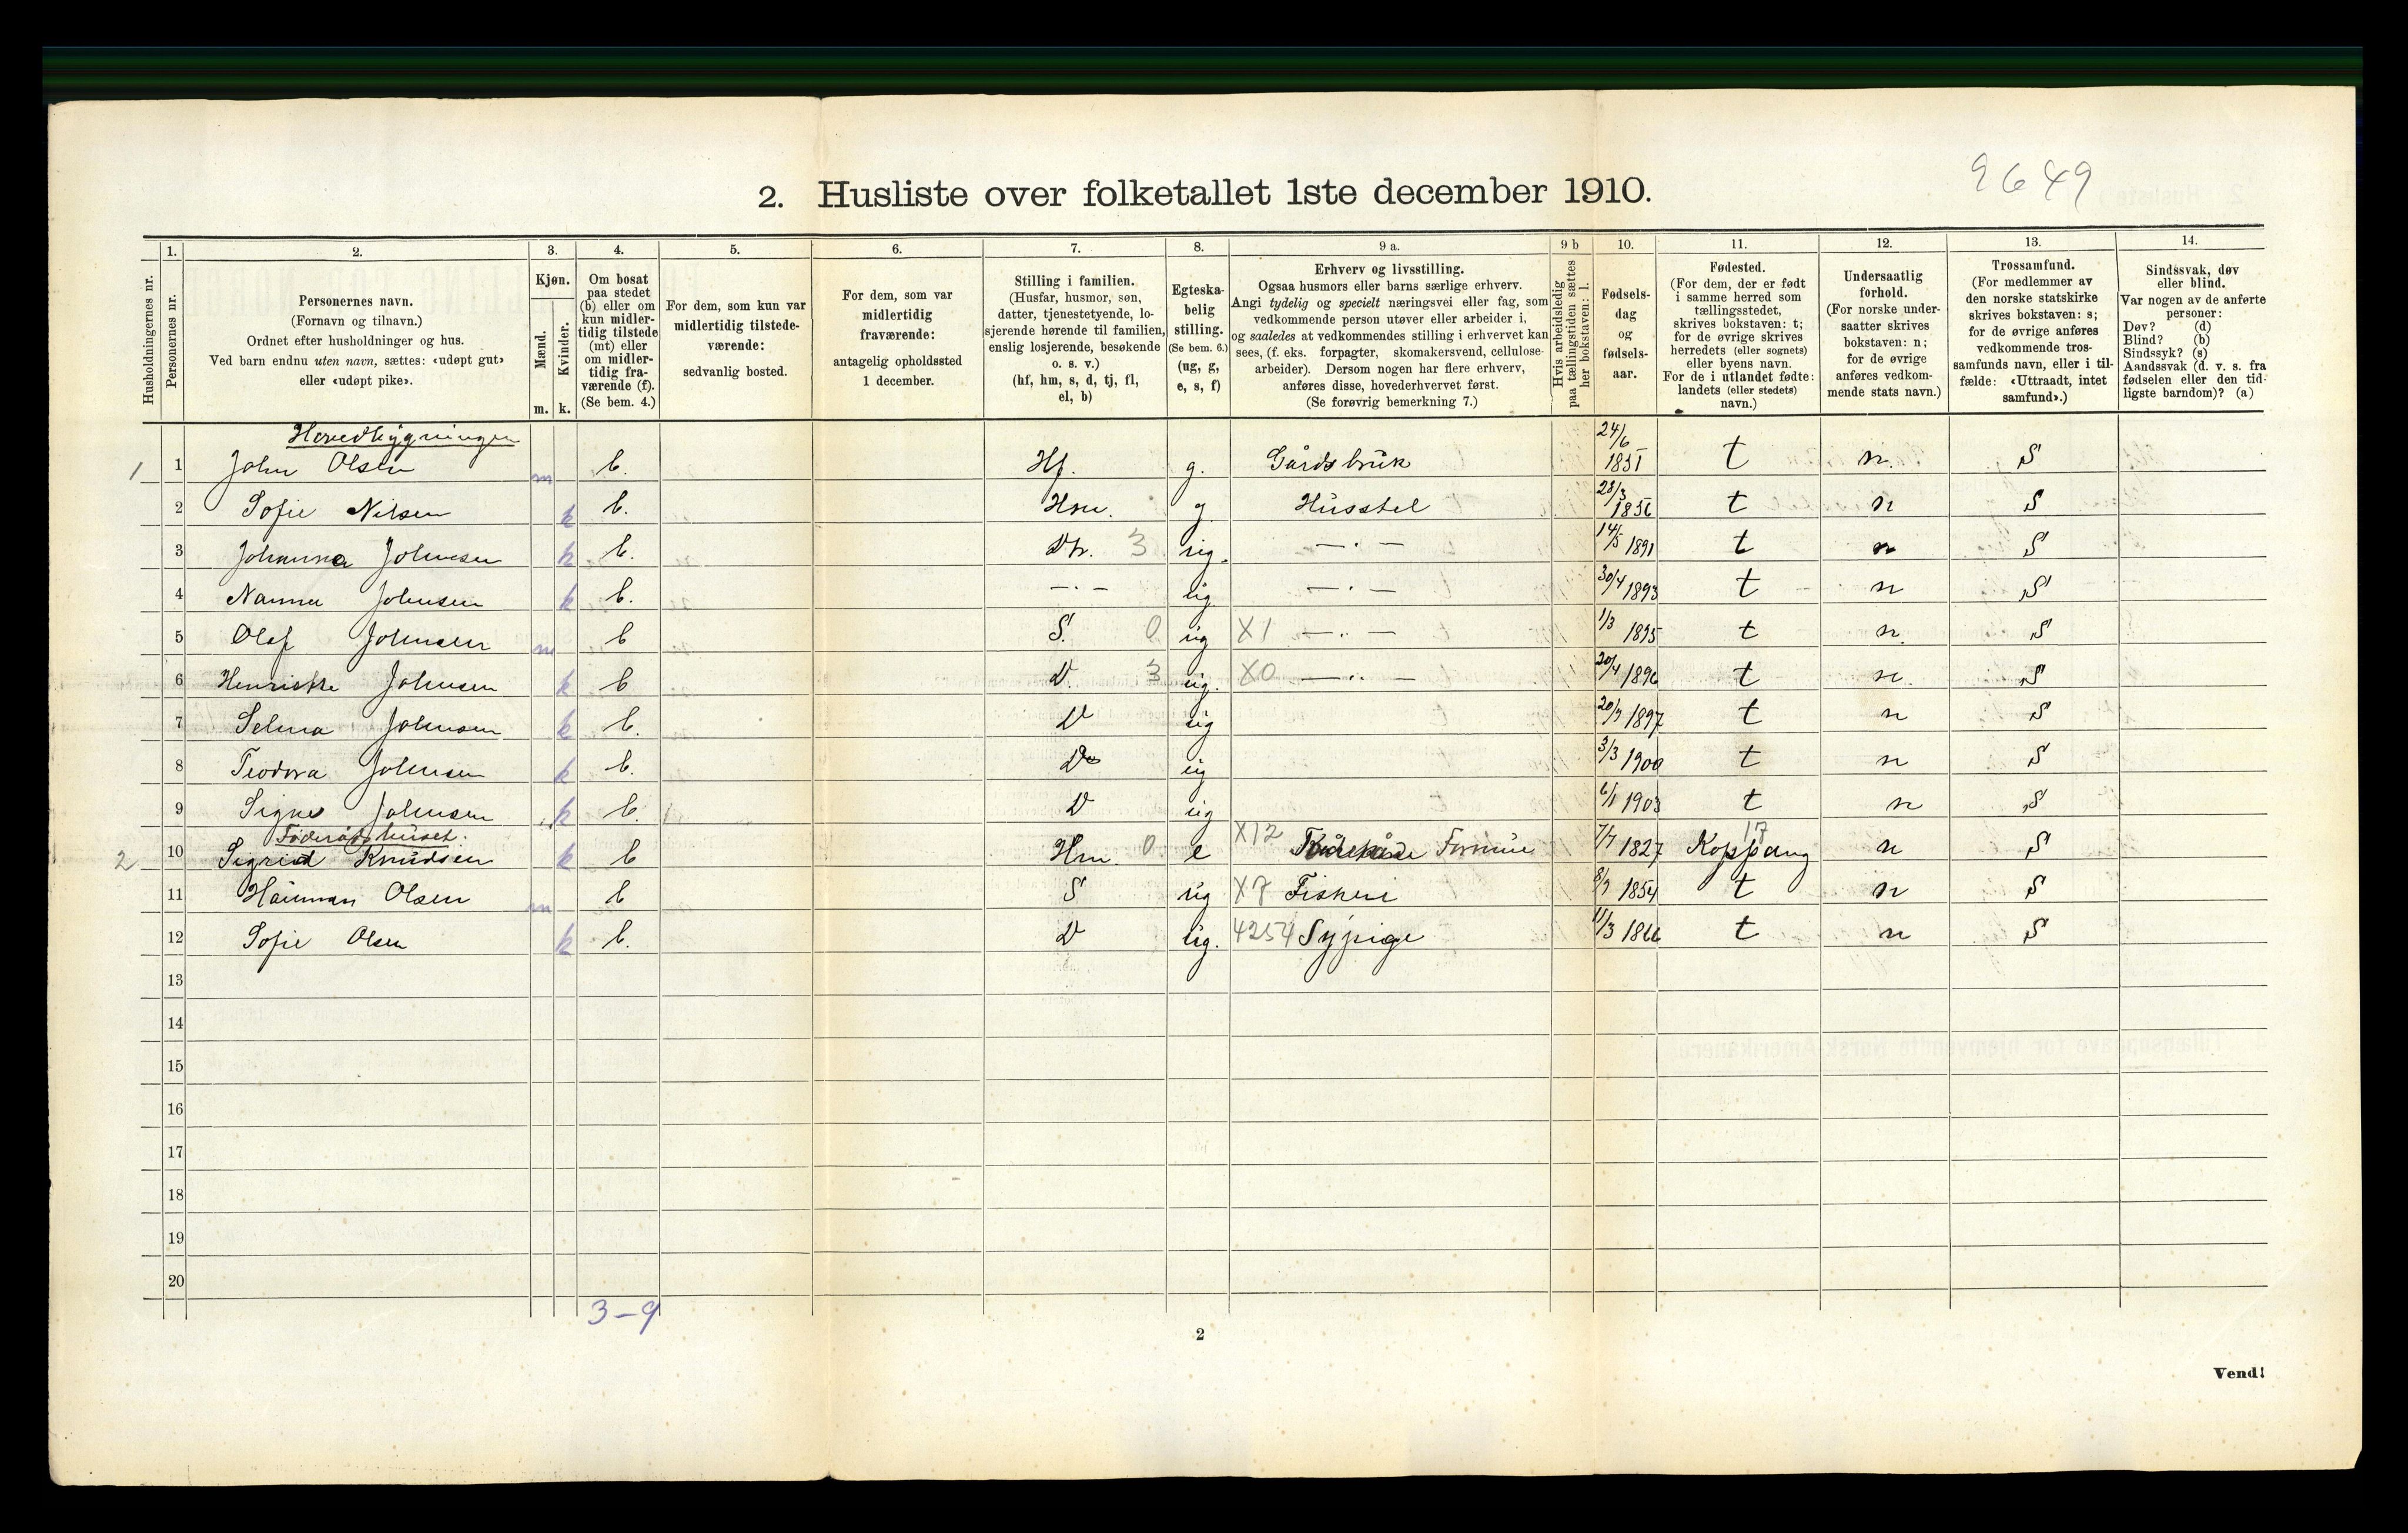 9649
2. Husliste over folketallet 1ste december 1910.
1. 2. 3. 4. 5. 6. 7. 8. 9 a. 9 b 10. 11. 12. 13. 14.
Husholdningernes nr.
Personernes nr.
Personernes navn.
(Fornavn og tilnavn.)
Ordnet efter husholdninger og hus.
Ved barn endnu uten navn, sættes: «udøpt gut»
eller «udøpt pike».
Kjøn.
Mænd.
Kvinder.
m. k.
Om bosat
paa stedet
(b) eller om
kun midler-
tidig tilstede
(mt) eller
om midler-
tidig fra-
værende (f).
(Se bem. 4.)
For dem, som kun var
midlertidig tilstede-
værende:
sedvanlig bosted.
For dem, som var
midlertidig
fraværende:
antagelig opholdssted
1 december.
Stilling i familien.
(Husfar, husmor, søn,
datter, tjenestetyende, lo-
sjerende hørende til familien,
enslig losjerende, besøkende
o. s. v.)
(hf, hm, s, d, tj, fl,
el, b)
Egteska-
belig
stilling.
(Se bem. 6.)
(ug, g,
e, s, f)
Erhverv og livsstilling.
Ogsaa husmors eller barns særlige erhverv.
Angi tydelig og specielt næringsvei eller fag, som
vedkommende person utøver eller arbeider i,
og saaledes at vedkommendes stilling i erhvervet kan
sees, (f. eks. forpagter, skomakersvend, cellulose-
arbeider). Dersom nogen har flere erhverv,
anføres disse, hovederhvervet først.
(Se forøvrig bemerkning 7.)
Hvis arbeidsledig
paa tællingstiden sættes
her bokstaven: l.
Fødsels-
dag
og
fødsels-
aar.
Fødested.
(For dem, der er født
i samme herred som
tællingsstedet,
skrives bokstaven: t;
for de øvrige skrives
herredets (eller sognets)
eller byens navn.
For de i utlandet fødte:
landets (eller stedets)
navn.)
Undersaatlig
forhold.
(For norske under-
saatter skrives
bokstaven: n;
for de øvrige
anføres vedkom-
mende stats navn.)
Trossamfund.
(For medlemmer av
den norske statskirke
skrives bokstaven: s;
for de øvrige anføres
vedkommende tros-
samfunds navn, eller i til-
fælde: «Uttraadt, intet
samfund».)
Sindssvak, døv
eller blind.
Var nogen av de anførte
personer:
Døv? (d)
Blind? (b)
Sindssyk? (s)
Aandssvak (d. v. s. fra
fødselen eller den tid-
ligste barndom)? (a)
Hovedbygningen
1 1 John Olsen m b. Hf. g. Gårdsbruk 24/6 1851 t n. S
2 Sofie Nilsen k b. Hm. g. Husstel 28/3 1856 t n S
3 Johanna Johnsen k b. Dtr. 3 ug. — . — 14/5 1891 t n S
4 Nanna Johnsen k b. — . — ug — . — 30/4 1893 t n S
5 Olaf Johnsen m b S. 0 ug X1 — .. — 1/3 1895 t n. S
6 Henrikke Johnsen k b D. 3 ug. X0 — .. — 20/4 1896 t n. S
7 Selma Johnsen k b. D ug 20/9 1897 t n S
8 Teodora Johnsen k b. D ug 3/3 1900 t n S
9 Signe Johnsen k b. D ug 6/1 1903 t n S
Føderådshuset.
2 10 Sigrid Knudsen k b Hm 0 e X12 Formue 7/7 1827 Koppang 17 n S
11 Olsen m b S ug X7 Fiskeri 8/9 1854 t n S
12 Sofie Olsen k b. D ug. 4254 Sypige 11/3 1866 t n S
13
14
15
16
17
18
19
20
3-9
2
Vend!